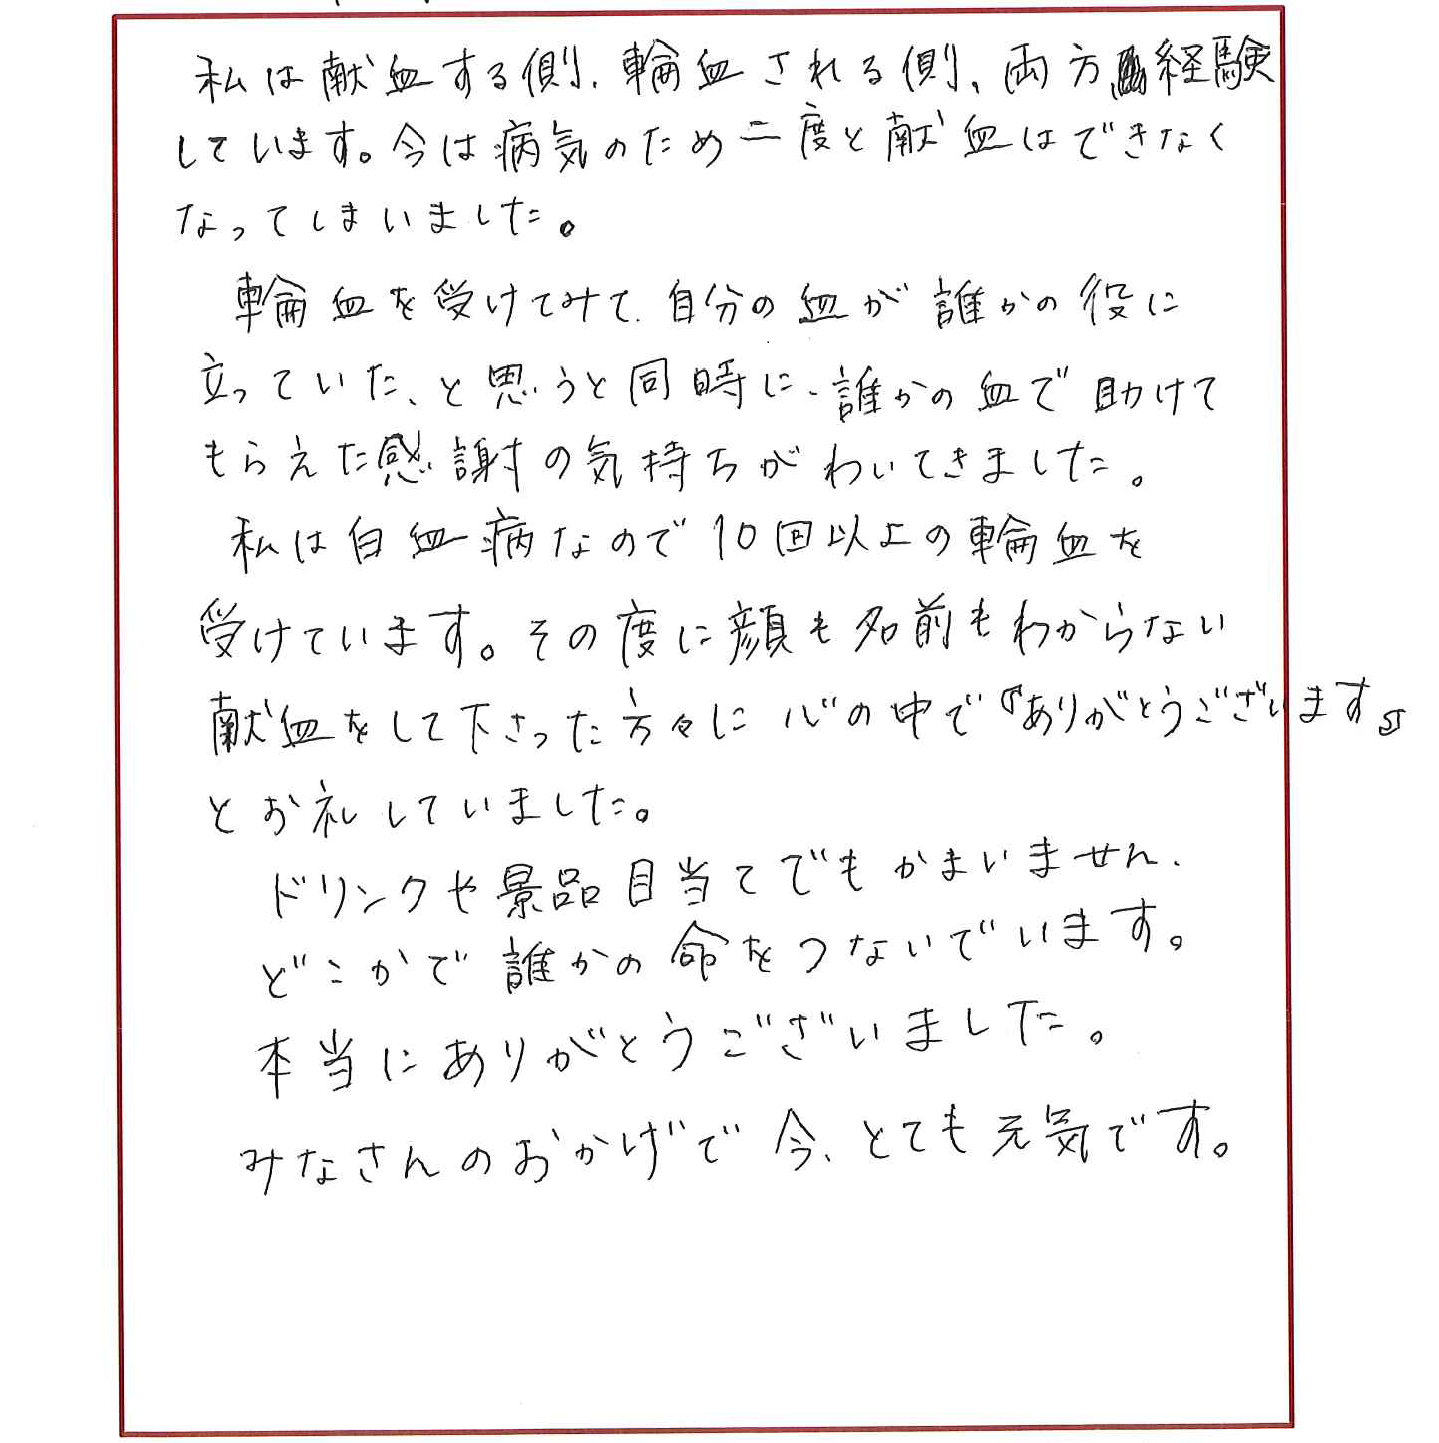 私は献血する側、輪血される側、両方経験
しています。今は病気のため二度と献血はできなく
なってしまいました。
輪血を受けてみて、自分の血が誰かの役に
立っていた、と思うと同時に、誰かの血で助けて
もらえた感謝の気持ちがわいてきました。
私は白血病なので10回以上の輪血を
受けています。その度に顔も名前もわからない
献血をして下さった方々に心の中で『ありがとうございます。』
とお礼していました。
ドリンクや景品目当てでもかまいません、
どこかで誰かの命をつないでいます。
本当にありがとうございました。
みなさんのおかげで今、とても元気です。